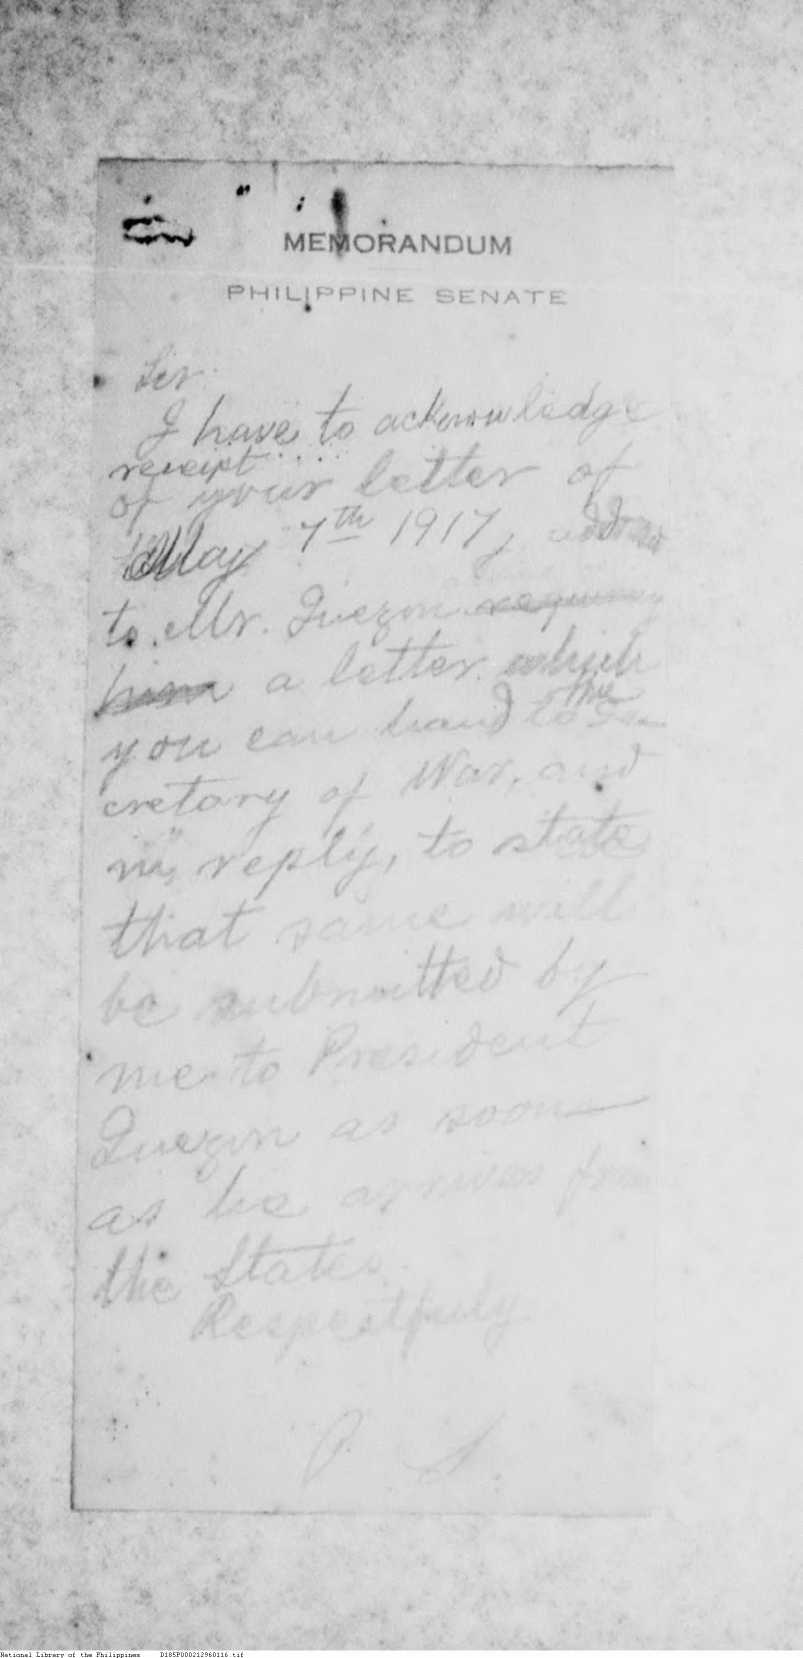 MEMORANDUM
PHILIPPINE SENATE
Sir:
I have to acknowledge
receipt
of your letter of
May 7th 1917,
to Mr. Quezon requiring
him a letter which
you can hand to the Se-
cretary of War, and
in reply, to state
that same will
be submitted by
me to President
Quezon as soon
as he arrives from
the States.
Respectfully
P. S.
National Library of the Philippines D185P000212960116.tif